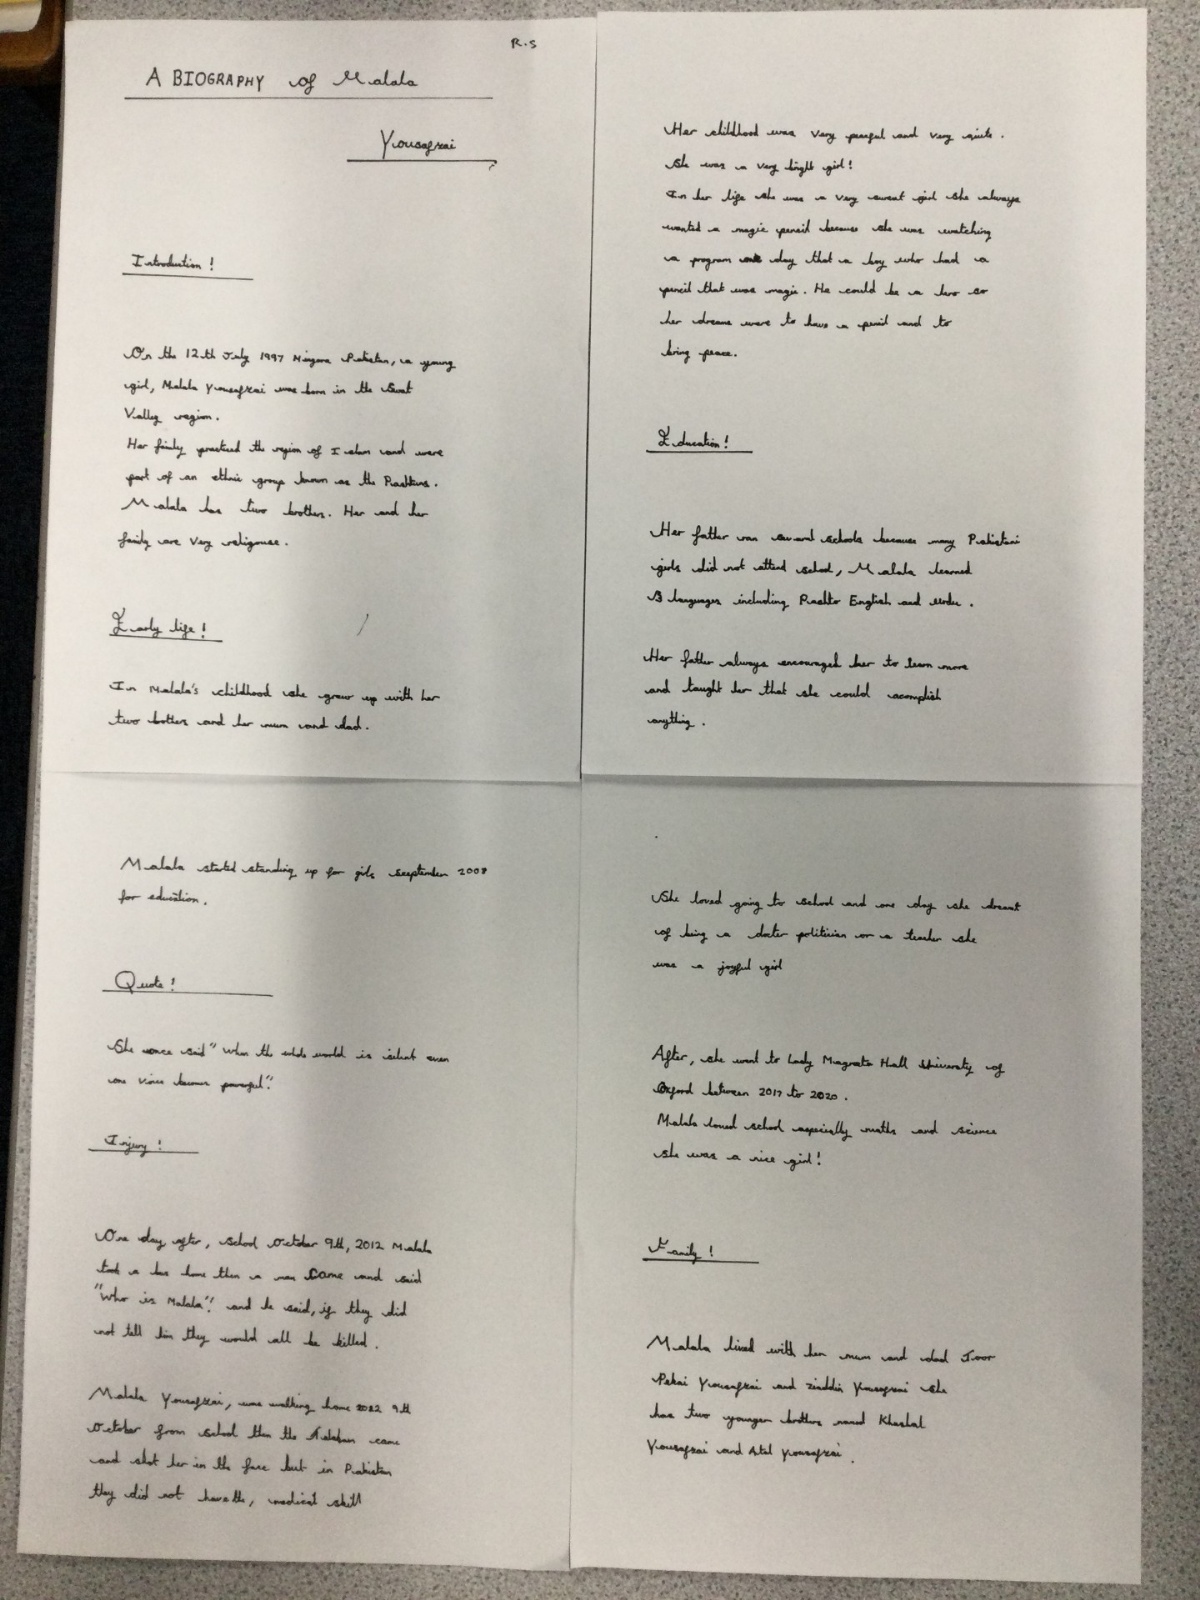 R.S
A BIOGRAPHY of Malala
Yousafzai
Introduction!
On the 12th July 1997 Mingora Pakistan, a young
girl, Malala Yousafzai was born in the Swat
Valley region.
Her faimly practised the region of Islam and were
part of an ethnic group known as the Pashtuns.
Malala has two brothers. Her and her
faimly are very religouse.
Early life!
In Malala's childhood she grew up with her
two brothers and her mum and dad.
Her childhood was very peaceful and very quite.
She was a very bright girl!
In her life she was a very sweat girl she always
wanted a magic pencil because she was watching
a program one day that a boy who had a
pencil that was magic. He could be a hero so
her dreams were to have a pencil and to
bring peace.
Education!
Her father ran several schools because many Pakistani
girls did not attend school, Malala learned
3 languages including Pashto English and Urdu.
Her father always encouraged her to learn more
and taught her that she could acomplish
anything.
Malala started standing up for girls September 2008
for education.
Quote!
She once said "When the whole world is silent even
one voice becomes powerful".
Injury!
One day after, school October 9th, 2012 Malala
took a bus home then a man came and said
"Who is Malala"! and he said, if they did
not tell him they would all be killed.
Malala Yousafzai, was walking home 2012 9th
October from school then the Taleban came
and shot her in the face but in Pakistan
they did not have the, medical skill
She loved going to school and one day she dreamt
of being a docter politician or a teacher she
was a joyful girl
After, she went to Lady Margrate Hall University of
Oxford between 2017 to 2020.
Malala loved school especially maths and science
she was a nice girl!
Family!
Malala lived with her mum and dad Toor
Pekai Yousafzai and ziaddin Yousafzai she
has two younger brothers named Khushal
Yousafzai and Atal Yousafzai.